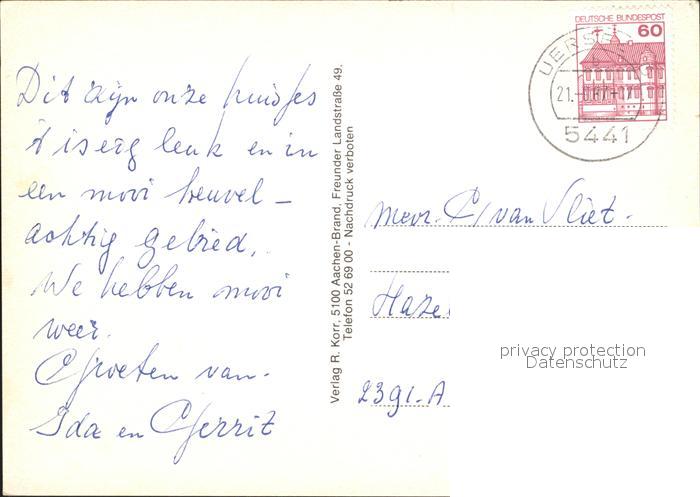 Dit zijn onze huisjes
't is erg leuk en in
een mooi heuvel-
achtig gebied,
We hebben mooi
weer.
Groeten van
Ida en Gerrit
Verlag R. Korr, 5100 Aachen-Brand, Freunder Landstraße 49.
Telefon 52 69 00 - Nachdruck verboten
DEUTSCHE BUNDESPOST
60
UERS
21.
5441
Mevr. C. van Vliet.
Haze
2391.A
privacy protection
Datenschutz